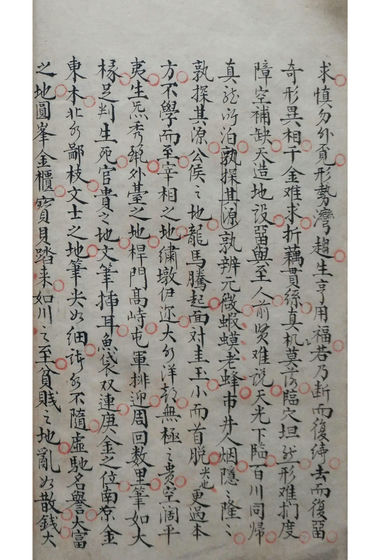 求慎勿外覓形勢灣趨生享用福若乃斷而復續去而復留
奇形異相千金難求折藕貫絲真机莫落臨穴坦然形難捫度
障空補缺天造地設留與至人前賢难說天光下臨百川同歸
真龍所泊孰探其源孰辨元微蝦蟆老蜂市井人烟隱之隆之
孰探其源公侯之地龍馬騰起面對圭玉小而首脫更過本
方不學而至宰相之地繡墩伊迩大水洋朝無極之貴空闊平
夷生氣秀絕外臺之地桿門髙峙屯軍排迎周回数里筆如大
椽足判生死官貴之地文筆插耳魚袋双連庚金之位南京金
東木北水鄙枝文士之地筆尖如細諸水不隨虛馳名譽大富
之地圓峯金櫃寳貝踏来如川之至貧賤之地亂如散錢大